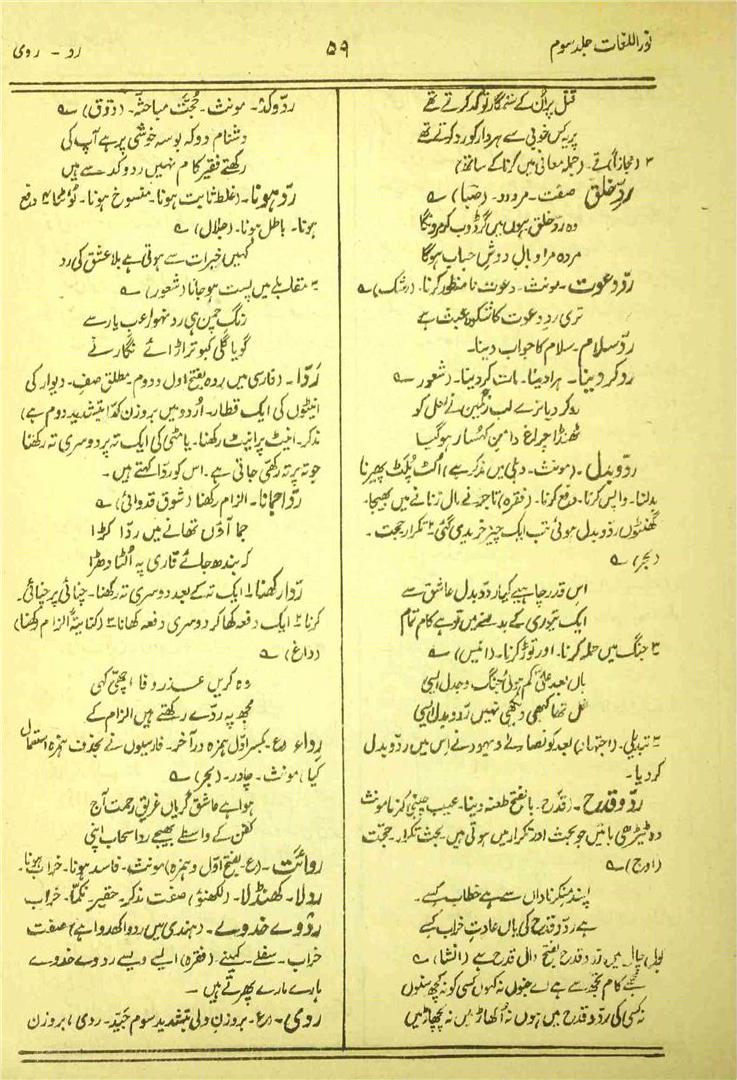 نوراللغات جلد سوم
۵۹
رد - روی
قتل پر اُن کے ستمگار تو کد کرتے تھے
پر یکس خوبی سے ہر وار کو رد کرتے تھے
۳ (مجازاً) قے۔ (جملہ معانی میں کرنا کے ساتھ)
ردِّ خلق صفت۔ مردود۔ (صبا) ؎
وہ ردِّ خلق ہوں میں گر ڈوب کر مرونگا
مردہ مرا وبالِ دوشِ حباب ہوگا
ردِّ دعوت۔ مونث۔ دعوت نامنظور کرنا۔ (رشک) ؎
تری ردِ دعوت کا شکوہ عبث ہے
ردِّ سلام۔ سلام کا جواب دینا۔
رد کر دینا۔ ہرا دینا۔ مات کر دینا۔ (شعور) ؎
رد کر دیا ترے لب رنگیں نے لعل کو
ٹھنڈا چراغ دامن کہسار ہوگیا
ردّ و بدل۔ (مونث۔ دہلی میں مذکر ہے) اُلٹ پلٹ پھیرنا
بدلنا۔ واپس کرنا۔ دفع کرنا۔ (فقرہ) تاجر نے مال زنانے میں بھیجا۔
گھنٹوں ردّ و بدل ہوئی تب ایک چیز خریدی گئی ۲ تکرار حجت۔
(بحر) ؎
اس قدر چاہیے کیا ردّ و بدل عاشق سے
ایک تیوری کے بدلنے میں تو ہے کام تمام
۳ جنگ میں حملہ کرنا۔ اور توڑ کرنا۔ (انیس) ؎
ہاں بعد علیؓ کم ہوئی جنگ و جدل ایسی
غل تھا کبھی دیکھی نہیں ردّ و بدل ایسی
۴ تبدیلی۔ (اجتہاد) بعد کو نصاریٰ و یہود نے اس میں ردّ و بدل
کر دیا۔
ردّ و قدح۔ (قدح۔ بالفتح طعنہ دینا۔ عیب چینی کرنا) مونث
وہ ٹیڑھی باتیں جو بحث اور تکرار میں ہوتی ہیں۔ بحث تکرار۔ حجت
(اوج) ؎
اپند منکر ناداں سے ہے خطاب کسے۔
ہے ردّ و قدح کی یاں عادتِ خراب کسے
بول چال میں رد و قدح بفتح دال قدح ہے (انشا) ؎
مجھے کام تجھ سے ہے اے جنوں نہ کہوں کسی کو نہ کچھ سنوں
نہ کسی کی ردّ و قدح میں ہوں نہ اُکھاڑ میں نہ پچھاڑ میں
ردّ و کد۔ مونث۔ حُجّت مباحثہ۔ (ذوق) ؎
دشنام دو کہ بوسہ خوشی پر ہے آپ کی
رکھتے فقیر کام نہیں رد و کد سے ہیں
ردّ ہونا۔ (غلط ثابت ہونا۔ منسوخ ہونا۔ لوٹنا ۲ دفع
ہونا۔ باطل ہونا۔ (جلال) ؎
کہیں خیرات سے ہوتی ہے بلا عشق کی رد
۳ مقابلے میں پست ہو جانا (شعور) ؎
رنگ چمن ہی رد نہوا عب یار سے
گویا گلی کبوتر اڑائے نگار نے
رَدّا۔ (فارسی میں ردہ بفتح اول و دوم۔ مطلق صف۔ دیوار کی
اینٹوں کی ایک قطار۔ اُردو میں بروزن گدّا بتشدید دوم ہے)
مذکر۔ اینٹ پر اینٹ رکھنا۔ یا مٹی کی ایک تہ پر دوسری تہ رکھنا
جو تہ پر تہ رکھی جاتی ہے۔ اس کو ردّا کہتے ہیں۔
ردّا جمانا۔ الزام رکھنا (شوق قدوائی) ؎
جما آؤں تھانے میں ردّا کڑا
کہ بندھ جائے قاری پہ اُلٹا دھڑا
ردّا رکھنا ۱ ایک تہ کے بعد دوسری تہ رکھنا۔ چنائی پر چنائی۔
کرنا ۲ ایک دفعہ کھا کر دوسری دفعہ کھانا ۳ (کنایتہً) الزام رکھنا)
(داغ) ؎
وہ کریں عذرِ وفا اچھی کہی
مجھ پہ ردّے رکھتے ہیں الزام کے
رِداء (ع۔ بکسر اوّل ہمزہ در آخر۔ فارسیوں نے بحذف ہمزہ استعمال
کیا) مونث۔ چادر۔ (بحر) ؎
ہوا ہے عاشق گریاں غریق رحمت آج
کفن کے واسطے بھیجے ردا سحاب اپنی
رِدائت۔ (ع۔ بفتح اوّل و ہمزہ) مونث۔ فاسد ہونا۔ خراب ہونا۔
ردلا۔ کھنڈلا۔ (لکھنؤ) صفت مذکر۔ حقیر۔ نکمّا۔ خراب
ردّوے خدوے۔ (ہندی میں ردوا کھدوا ہے) صفت
خراب۔ سفلے۔ کمینے۔ (فقرہ) ایسے ویسے ردوے خدوے
مارے مارے پھرتے ہیں۔
روی۔ (ع۔ بروزن ولی بتشدید سوم جیّد۔ ردی ، بروزن